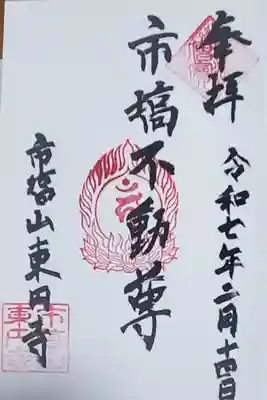 奉拝
令和七年二月十四日
市塙不動尊
市塙山東円寺